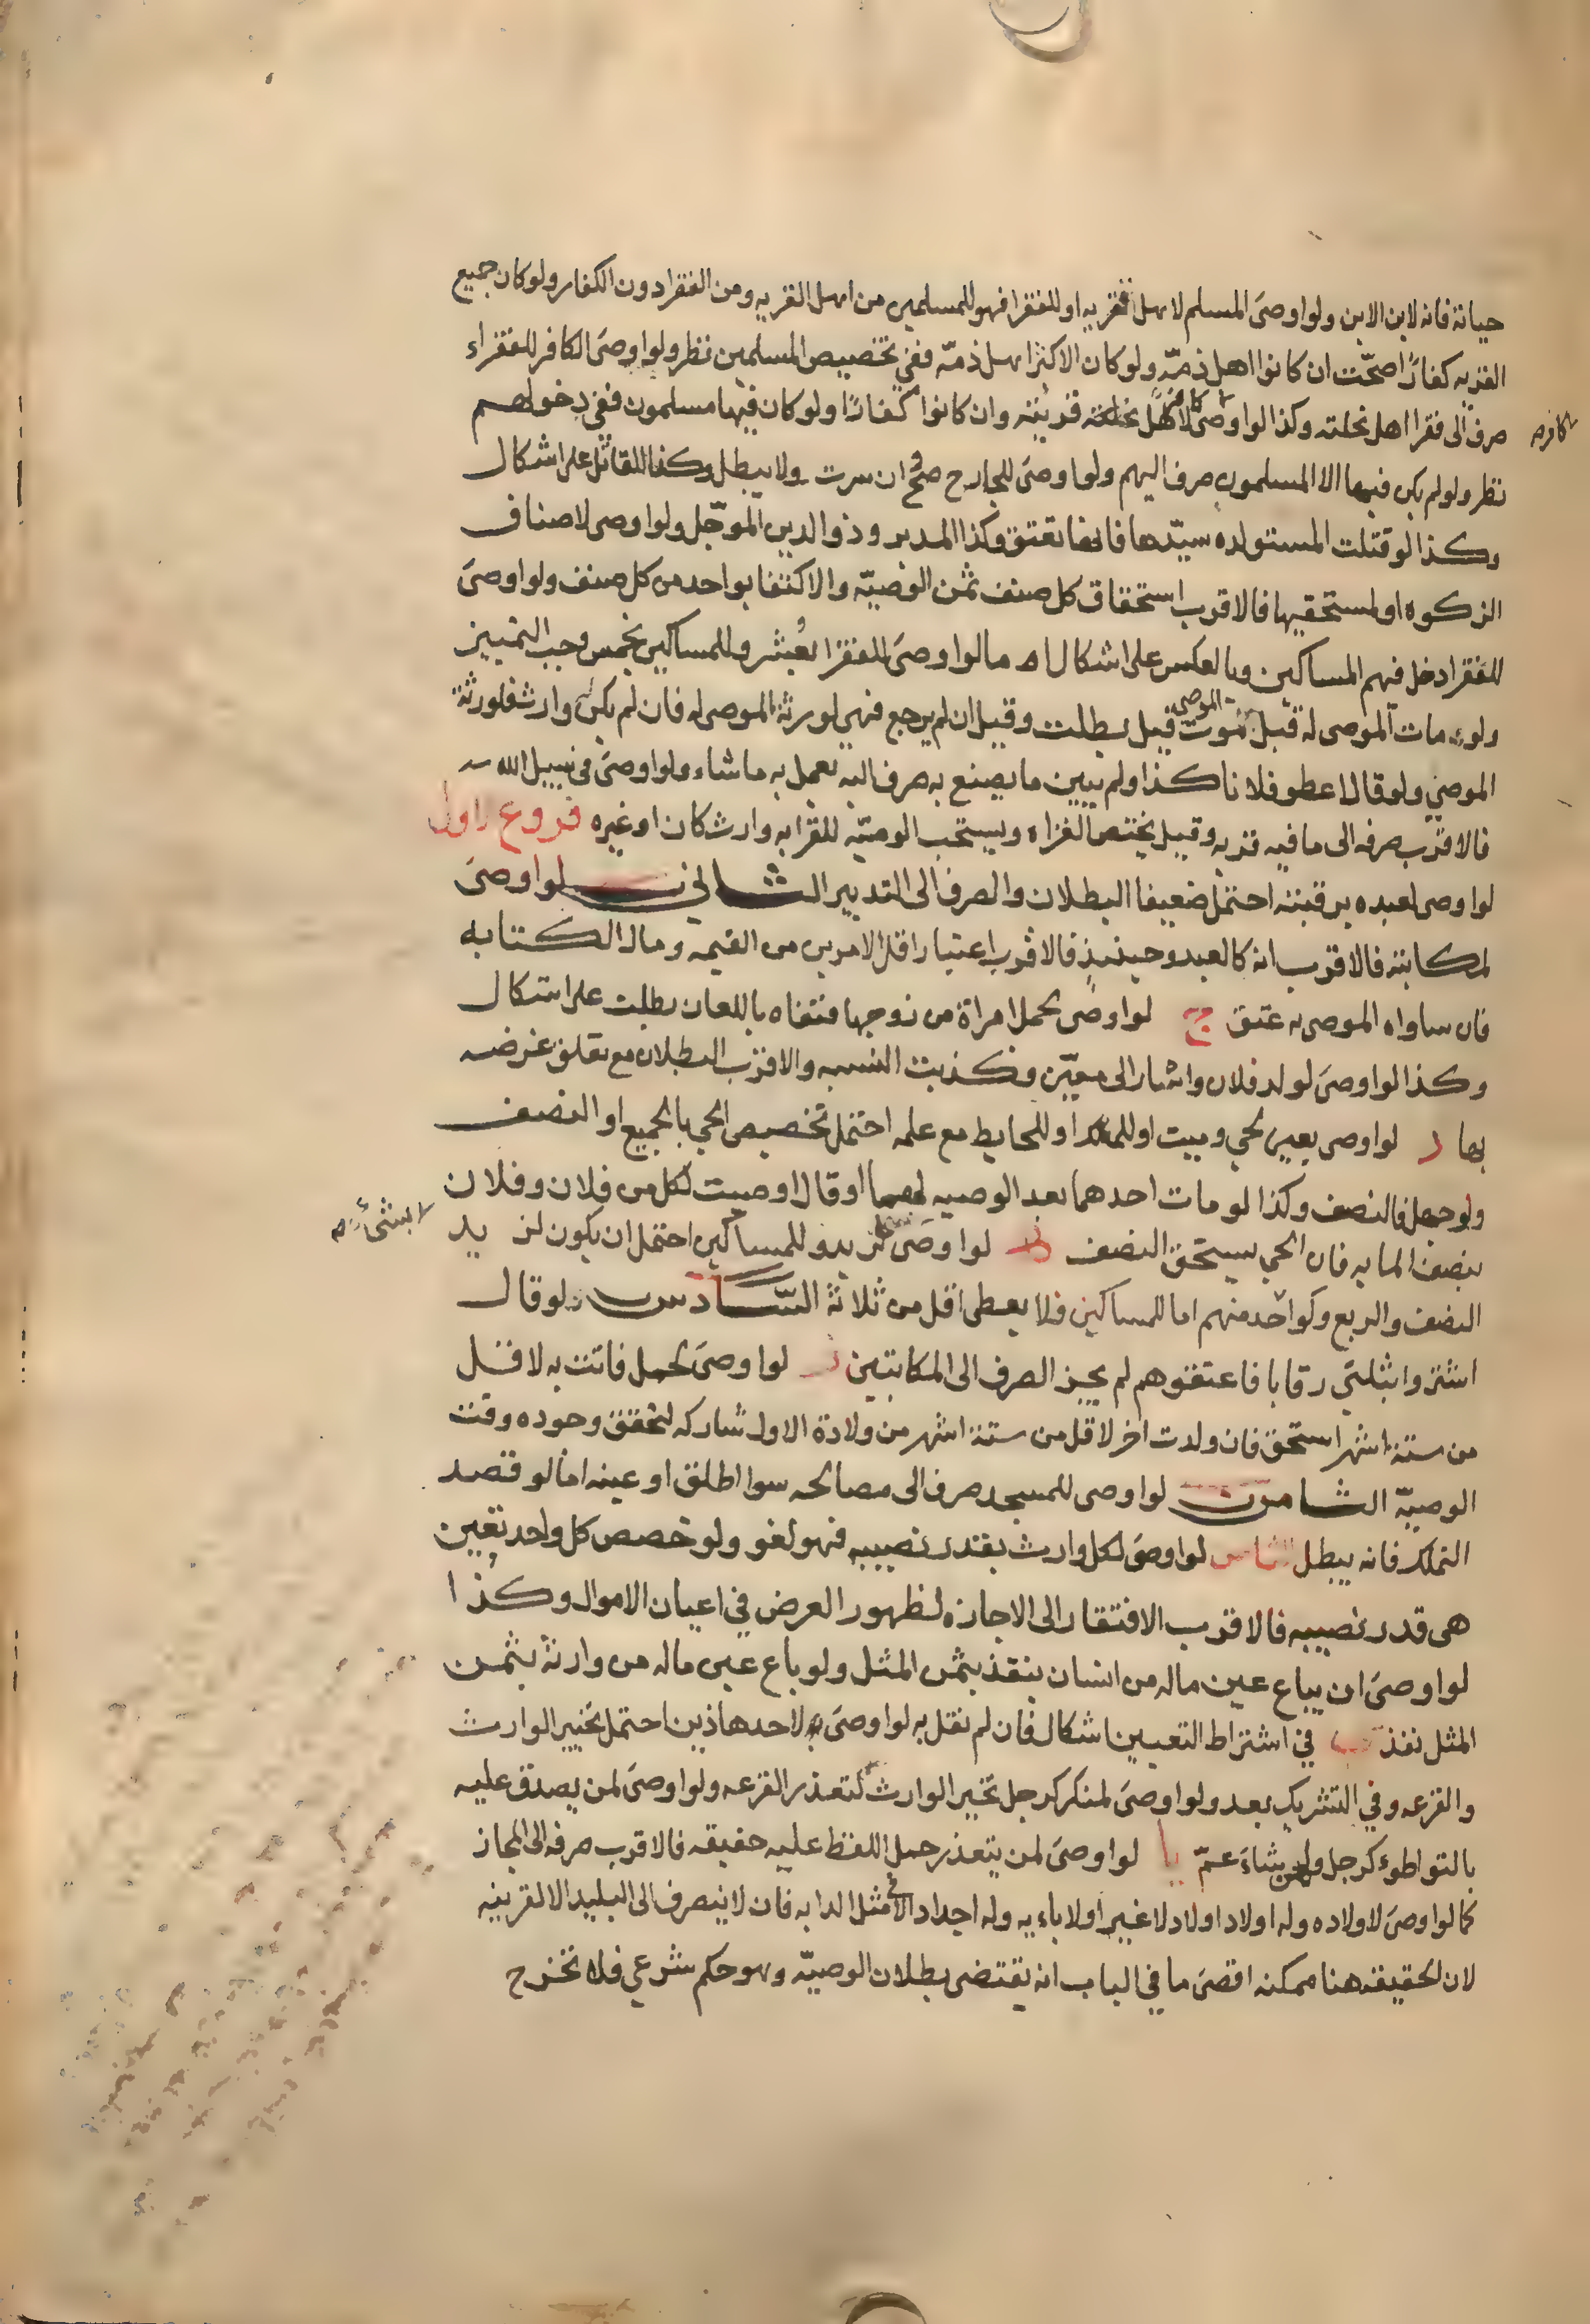 حياته فانه لابن الابن ولو اوصى المسلم لاهل القريه او للفقرا فهو للمسلمين من اهل القريه ومن الفقرا دون الكفار ولو كان جميع
القريه كفارًا صحّت ان كانوا اهل ذمّه ولو كان الاكثر اهل ذمّه ففي تخصيص المسلمين نظر ولو اوصى الكافر للفقراء
صرف الى فقرا اهل نحلته وكذا لو اوصى لاهل قريته وان كانوا كفارًا ولو كان فيها مسلمون ففي دخولهم
كافر
نظر ولو لم يكن فيها الا المسلمون صرف اليهم ولو اوصى للجارح صح وان سرت ولا يبطل وكذا للقاتل على اشكال
وكذا لو قتلت المستولده سيّدها فانها تعتق وكذا المدبر وذو الدين الموجّل ولو اوصى لاصناف
الزكوه او لمستحقيها فالاقرب استحقاق كل صنف ثمن الوصيّه والاكتفا بواحد من كل صنف ولو اوصى
للفقرا دخل فيهم المساكين وبالعكس على اشكال اما لو اوصى للفقرا بعُشر وللمساكين بخمس وجب التمييز
ولو مات الموصى له قبل موت الموصي قيل بطلت وقيل ان لم يرجع فهي لورثة الموصى له فان لم يكن وارث فلورثة
الموصي ولو قال اعطو فلانا كذا ولم يبين ما يصنع به صرف اليه يعمل به ما شاء ولو اوصى في سبيل الله
فالاقرب صرفه الى ما فيه قربه وقيل يختص الغزاه ويستحب الوصيّه للقرابه وارث كان او غيره فروع اول
لو اوصى لعبده برقبته احتمل ضعيفا البطلان والصرف الى التدبير الثاني لو اوصى
لمكاتبته فالاقرب انه كالعبد وحينئذٍ فالاقرب اعتبار اقل الامرين من القيمه ومال الكتابه
فان ساواه الموصى به عتق ج لو اوصى لحمل امراة من زوجها فنفاه باللعان بطلت على اشكال
وكذا لو اوصى لولد فلان واشار الى معيّن وكذبت النسبه والاقرب البطلان مع تعلق غرضه
بها د لو اوصى بعين لحي وميت او للملك او للحايط مع علمه احتمل تخصيص الحي بالجميع او النصف
ولو جهل فالنصف وكذا لو مات احدهما بعد الوصيه لهما او قال اوصيت لكل من فلان وفلان
بنصف المايه فان الحي يستحق النصف لو اوصى لزيد وللمساكين احتمل ان يكون لزيد
بشئ
النصف والربع وكواحد منهم اما للمساكين فلا يعطى اقل من ثلاثة السّادس لو قال
اشتروا بثلثي رقابا فاعتقوهم لم يجز الصرف الى المكاتبين ز لو اوصى لحمل فاتت به لاقل
من ستة اشهر استحق فان ولدت اخر لاقل من ستة اشهر من ولادة الاول شاركه لتحقق وجوده وقت
الوصيّه الثامن لو اوصى للمسجد صرف الى مصالحه سوا اطلق او عينه اما لو قصد
التملك فانه يبطل لو اوصى لكل وارث بقدر نصيبه فهو لغو ولو خصص كل واحد بعين
هى قدر نصيبه فالاقرب الافتقار الى الاجازه لظهور الغرض في اعيان الاموال وكذا
لو اوصى ان يباع عين ماله من انسان ينفذ بثمن المثل ولو باع عين ماله من وارثه بثمن
المثل نفذ في اشتراط التعيين اشكال فان لم نقل به لو اوصى به لاحد هاذين احتمل تخيير الوارث
والقرعه وفي التشريك بعد ولو اوصى لمنكر كرجل تخير الوارث لتعذر القرعه ولو اوصى لمن يصدق عليه
بالتواطوء كرجل ولمن يشاء عمّ يا لو اوصى لمن يتعذر حمل اللفظ عليه حقيقه فالاقرب صرفه الى المجاز
كما لو اوصى لاولاده وله اولاد اولاد لا غير او لاباءيه وله اجداد لا في مثل الدابه فان لا ينصرف الى البليد الا لقرينه
لان الحقيقه هنا ممكنه اقصى ما في الباب انه يقتضى بطلان الوصيّه وهو حكم شرعي فلا تخرج